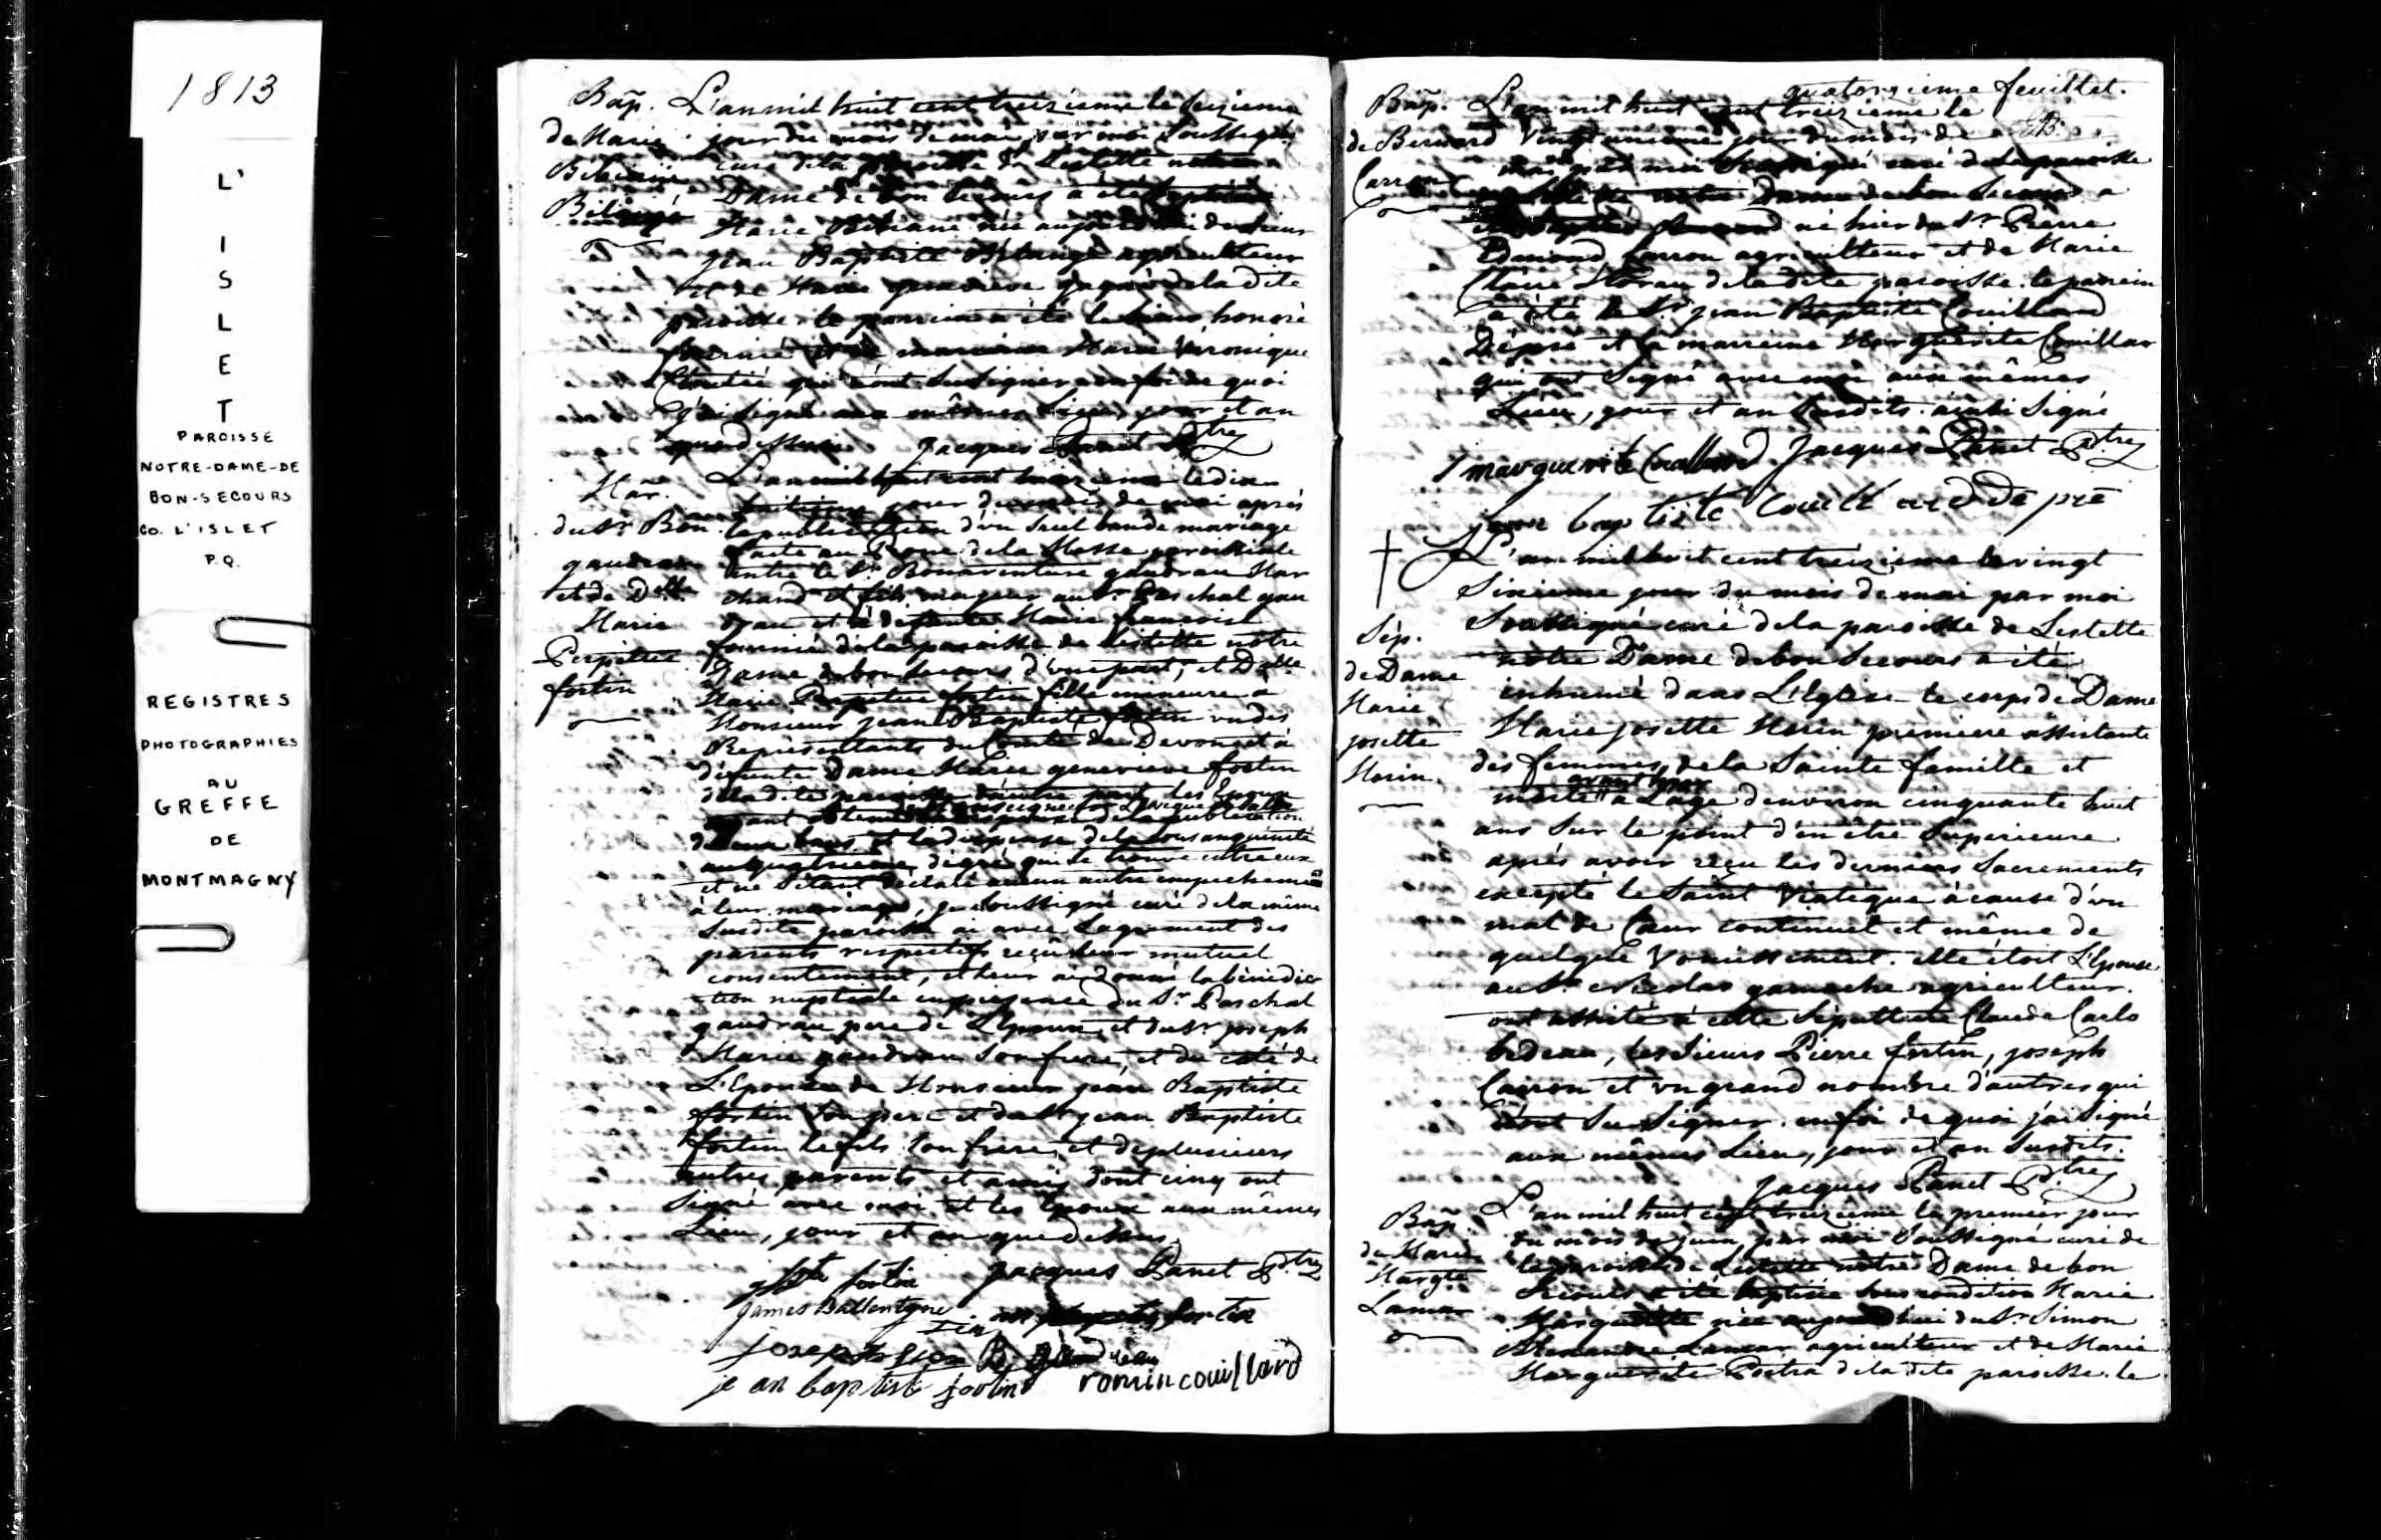 1813
L'
I
S
L
E
T
PAROISSE
NOTRE-DAME-DE
BON-SECOURS
Co. L'ISLET
P.Q.
REGISTRES
PHOTOGRAPHIES
AU
GREFFE
DE
MONTMAGNY
Bap. L'an mil huit cent treizieme le seizieme
de Marie jour du mois de mai par moi Soussigné
curé de la paroisse de Leslette notre
Dame de bon secours a été baptisée
Marie Bibiane née aujourd'hui du Sieur
jean Baptiste Bélangé agriculteur
et de Marie genevieve gagné de la dite
paroisse. le parrain a été le Sieur honoré
et la marraine Marie Véronique
Cloutié qui n'ont su signer en foi de quoi
j'ai signé aux mêmes Lieu, jour et an
que dessus Jacques Panet Ptre
Mar. L'an mil huit cent treizieme le dix
huitieme jour du mois de mai après
du Sr Bon. la publication d'un seul ban de mariage
gaudrau faite au Prone de la Messe paroissiale
entre le Sr Bonaventure gaudrau Mar
et de Delle chand et fils majeur au Sr Paschal gau
Marie drau et à défunte Marie françoise
fournié de la paroisse de Leslette notre
Perpétue Dame de bon secours d'une part, et Delle
fortin Marie Perpétue fortin fille mineure à
Monsieur jean Baptiste fortin un des
Représentants du Comté de Devon et à
défunte Dame Marie genevieve fortin
de la dite paroisse d'autre part les Epoux
ayant obtenu de Monseigneur L'Evêque
la dispense de la publication
de deux bans et la dispense de la consanguinité
au quatrieme dégré qui se trouve entre eux
et ne s'étant déclaré aucun autre empechement
à leur mariage, je soussigné curé de la même
susdite paroisse ai avec l'agrement des
parents respectifs reçu leur mutuel
consentement, et leur ai donné la bénédic
tion nuptiale en présence du Sr Paschal
gaudrau pere de L'Epoux et du Sr joseph
Marie gaudrau son frere, et du coté de
L'Epouse de Monsieur jean Baptiste
fortin son pere et du Sr jean Baptiste
fortin le fils son frere, et de plusieurs
autres parents et amis dont cinq ont
signé avec moi et les Epoux aux mêmes
Lieu, jour et an que dessus.
fortin Jacques Panet Ptre
James Ballentyne fortin
je an baptist fortin romin couillard
quatorzieme feuillet.
Bap. L'an mil huit cent treizieme le
de Bernard vingt unieme jour du mois de
Carron mai par moi Soussigné curé de la paroisse
de Leslette notre Dame de bon Secours a
été baptisé Bernard né hier du Sr Pierre
Edmond Carron agriculteur et de Marie
Claire Moran de la dite paroisse. le parrain
a été le Sr jean Baptiste Couillard
Dépré et la marraine Marguerite Couillar
qui ont signé avec moi aux mêmes
Lieu, jour et an susdits. ainsi signé
marguerite Couillard Jacques Panet Ptre
jean baptiste Couill ard dé pré
L'an mil huit cent treizieme le vingt
Sixieme jour du mois de mai par moi
Sép. Soussigné curé de la paroisse de Leslette
notre Dame de bon Secours a été
de Dame inhumé dans L'Eglise le corps de Dame
Marie
josette Marie josette Morin premiere assistante
Morin. des femmes de la Sainte famille et
avant hier
morte à L'age d'environ cinquante huit
ans sur le point d'en être Superieure
après avoir reçu les derniers Sacrements
excepté le Saint Viatique à cause d'un
mal de Cœur continuel et même de
quelque vomissement. elle étoit L'Epouse
au Sr Nicolas gamache agriculteur.
ont assisté à cette Sépulture Claude Carlo
bedeau, les Sieurs Pierre fortin, joseph
Carron et un grand nombre d'autres qui
n'ont su signer. en foi de quoi j'ai signé
aux mêmes Lieu, jour et an susdits.
Jacques Panet Ptre
Bap. L'an mil huit cent treizieme le premier jour
du mois de juin, par moi Soussigné curé de
de Marie la paroisse de Leslette notre Dame de bon
Margte Secours a été baptisée sous condition Marie
Lamar Marguerite née aujourd'hui du Sr Simon
Alexandre Lamar agriculteur et de Marie
Marguerite Poitra de la dite paroisse. le